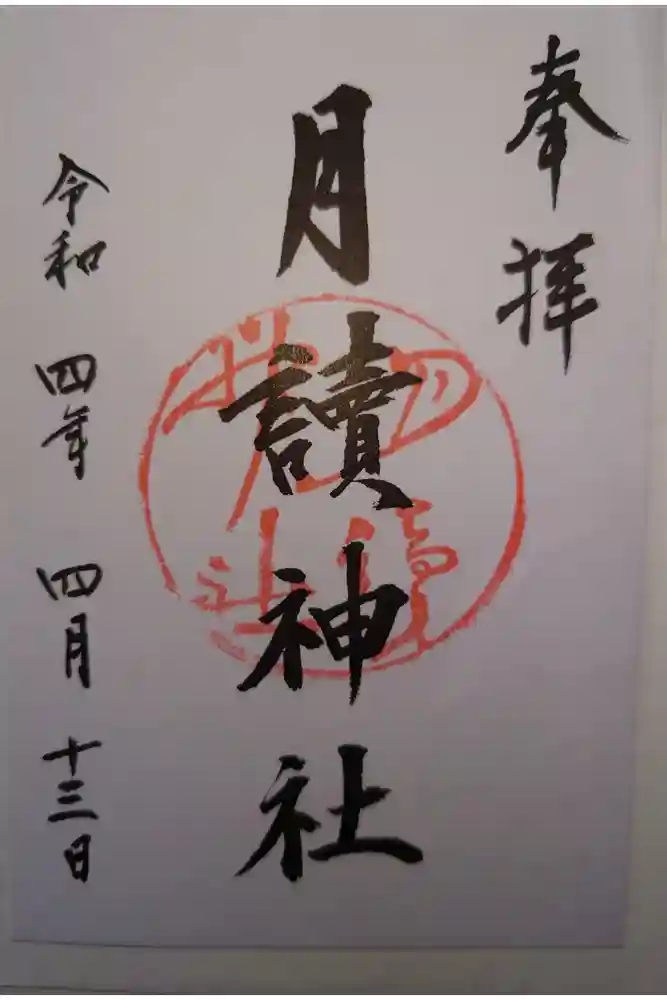 奉拝
月讀神社
令和四年四月十三日